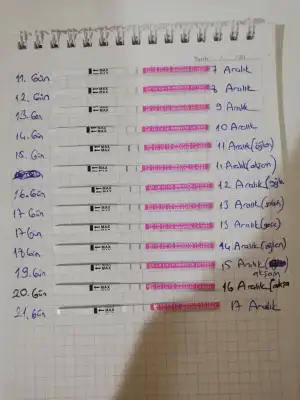 11. Gün MAX 7 Aralık
12. Gün MAX 8 Aralık
13. Gün MAX 9 Aralık
14. Gün MAX 10 Aralık
15. Gün MAX 11 Aralık (öğlen)
MAX 11 Aralık (akşam)
16. Gün MAX 12 Aralık (öğle
17. Gün MAX 13 Aralık
17. Gün MAX 13 Aralık (gece)
18. Gün MAX 14 Aralık (öğlen)
19. Gün MAX 15 Aralık akşam
20. Gün MAX 16 Aralık (akşa
21. Gün MAX 17 Aralık